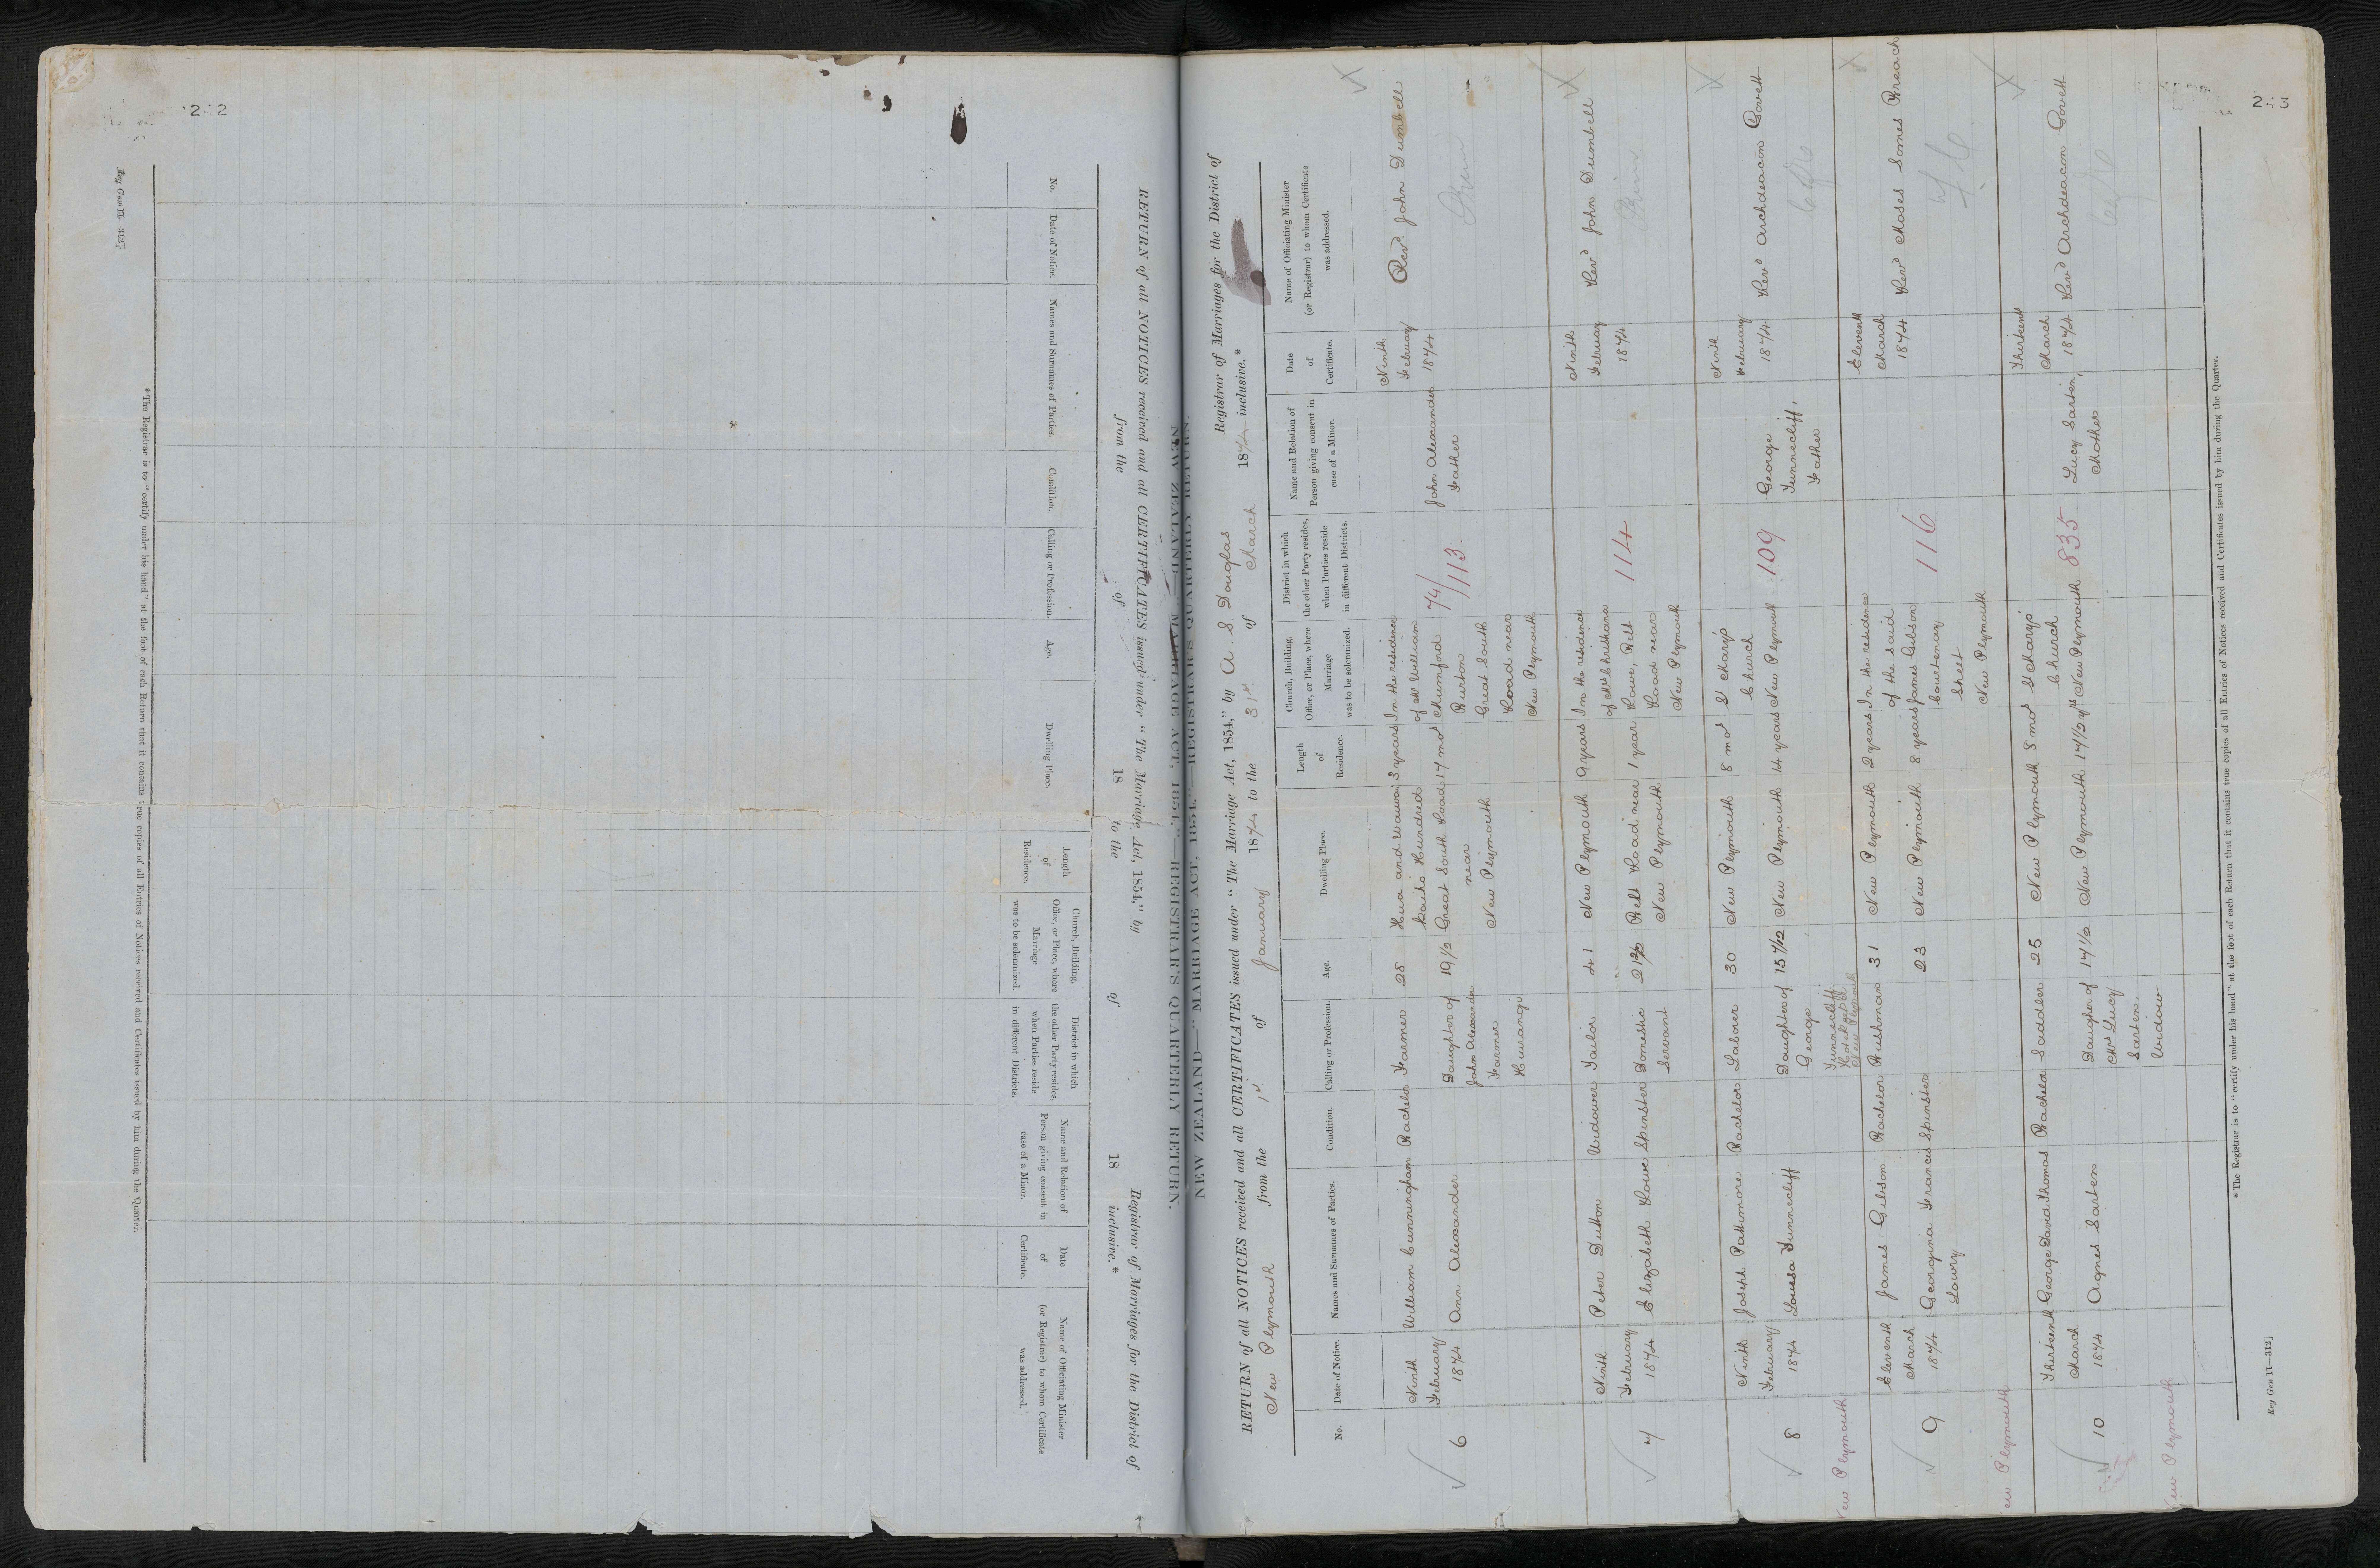 242
Key Gen 11—312]
NEW ZEALAND—"MARRIAGE ACT, 1854."—REGISTRAR'S QUARTERLY RETURN.
RETURN of all NOTICES received and all CERTIFICATES issued under "The Marriage Act, 1854," by Registrar of Marriages for the District of
from the of 18 to the of 18 inclusive.*
No.
Date of Notice.
Names and Surnames of Parties.
Condition.
Calling or Profession.
Age.
Dwelling Place.
Length of Residence.
Church, Building, Office, or Place, where Marriage was to be solemnized.
District in which the other Party resides, when Parties reside in different Districts.
Name and Relation of Person giving consent in case of a Minor.
Date of Certificate.
Name of Officiating Minister (or Registrar) to whom Certificate was addressed.
*The Registrar is to "certify under his hand" at the foot of each Return that it contains true copies of all Entries of Notices received and Certificates issued by him during the Quarter.
NEW ZEALAND—"MARRIAGE ACT, 1854."—REGISTRAR'S QUARTERLY RETURN.
RETURN of all NOTICES received and all CERTIFICATES issued under "The Marriage Act, 1854," by A. S. Douglas Registrar of Marriages for the District of
New Plymouth from the 1st of January 1874 to the 31st of March 1874 inclusive.*
No.
Date of Notice.
Names and Surnames of Parties.
Condition.
Calling or Profession.
Age.
Dwelling Place.
Length of Residence.
Church, Building, Office, or Place, where Marriage was to be solemnized.
District in which the other Party resides, when Parties reside in different Districts.
Name and Relation of Person giving consent in case of a Minor.
Date of Certificate.
Name of Officiating Minister (or Registrar) to whom Certificate was addressed.
6
Ninth February 1874
William Cunningham Bachelor Farmer 28 Hua and Waiwakaiho Hundred 3 years
Ann Alexander Daughter of John Alexander Farmer Hurangi 19 1/2 Great South Road near New Plymouth 17 mos
In the residence of Mr William Mumford Burton Great South Road near New Plymouth
74/113
John Alexander Father
Ninth February 1874
Revd. John Dumbell
7
Ninth February 1874
Peter Dutton Widower Tailor 41 New Plymouth 9 years
Elizabeth Lowe Spinster Domestic Servant Belt Road near New Plymouth 1 year
In the residence of Mrs Christiana Lowe, Belt Road near New Plymouth
114
Ninth February 1874
Revd John Dumbell
8
Ninth February 1874
Joseph Pattimore Bachelor Laborer 30 New Plymouth 8 mos
Louisa Tunnecliff Daughter of George Tunnecliff New Plymouth 15 7/12 New Plymouth 14 years
St Mary's Church New Plymouth
109
George Tunnecliff, Father
Ninth February 1874
Revd Archdeacon Govett
New Plymouth
9
Eleventh March 1874
James Gibson Bachelor Bushman 31 New Plymouth 2 years
Georgina Francis Lowry Spinster 23 New Plymouth 8 years
In the residence of the said James Gibson Courtenay Street New Plymouth
116
Eleventh March 1874
Revd Moses Somes Breach
New Plymouth
10
Thirteenth March 1874
George David Thomas Bachelor Saddler 25 New Plymouth 8 mos
Agnes Sarten Daughter of Mrs Lucy Sarten, Widow 17 1/2 New Plymouth 17 1/2 yrs
St Mary's Church New Plymouth
835
Lucy Sarten, Mother
Thirteenth March 1874
Revd Archdeacon Govett
New Plymouth
*The Registrar is to "certify under his hand" at the foot of each Return that it contains true copies of all Entries of Notices received and Certificates issued by him during the Quarter.
Key Gen 11—312]